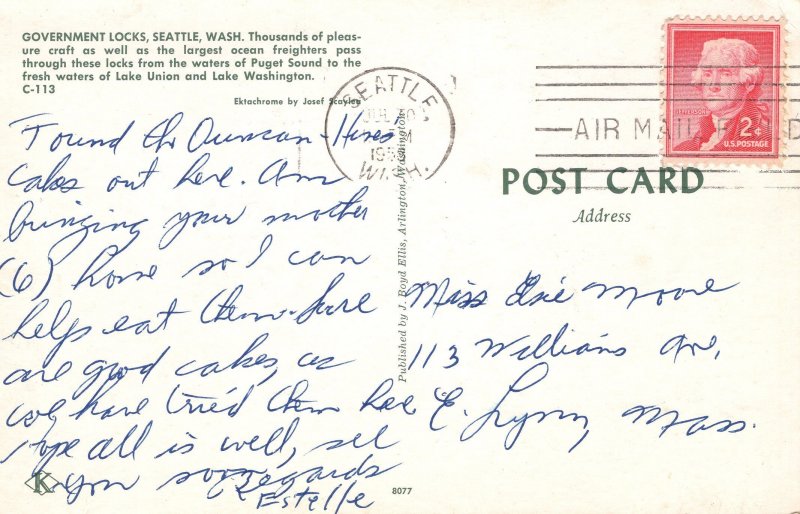 GOVERNMENT LOCKS, SEATTLE, WASH. Thousands of pleas-
ure craft as well as the largest ocean freighters pass
through these locks from the waters of Puget Sound to the
fresh waters of Lake Union and Lake Washington.
C-113
Ektachrome by Josef Scaylea
Found the Duncan-Hines
cakes out here. Am
bringing your mother
(6) home so I can
helps eat them - Sure
are good cakes, as
we have tried them here
Hope all is well, see
you soon
Regards
Estelle
K
Published by J. Boyd Ellis, Arlington, Washington
8077
SEATTLE,
JUL
PM
WASH.
AIR MAIL
JEFFERSON
2¢
U.S. POSTAGE
POST CARD
Address
Miss Moore
113 Williams Ave,
E. Lynn, Mass.